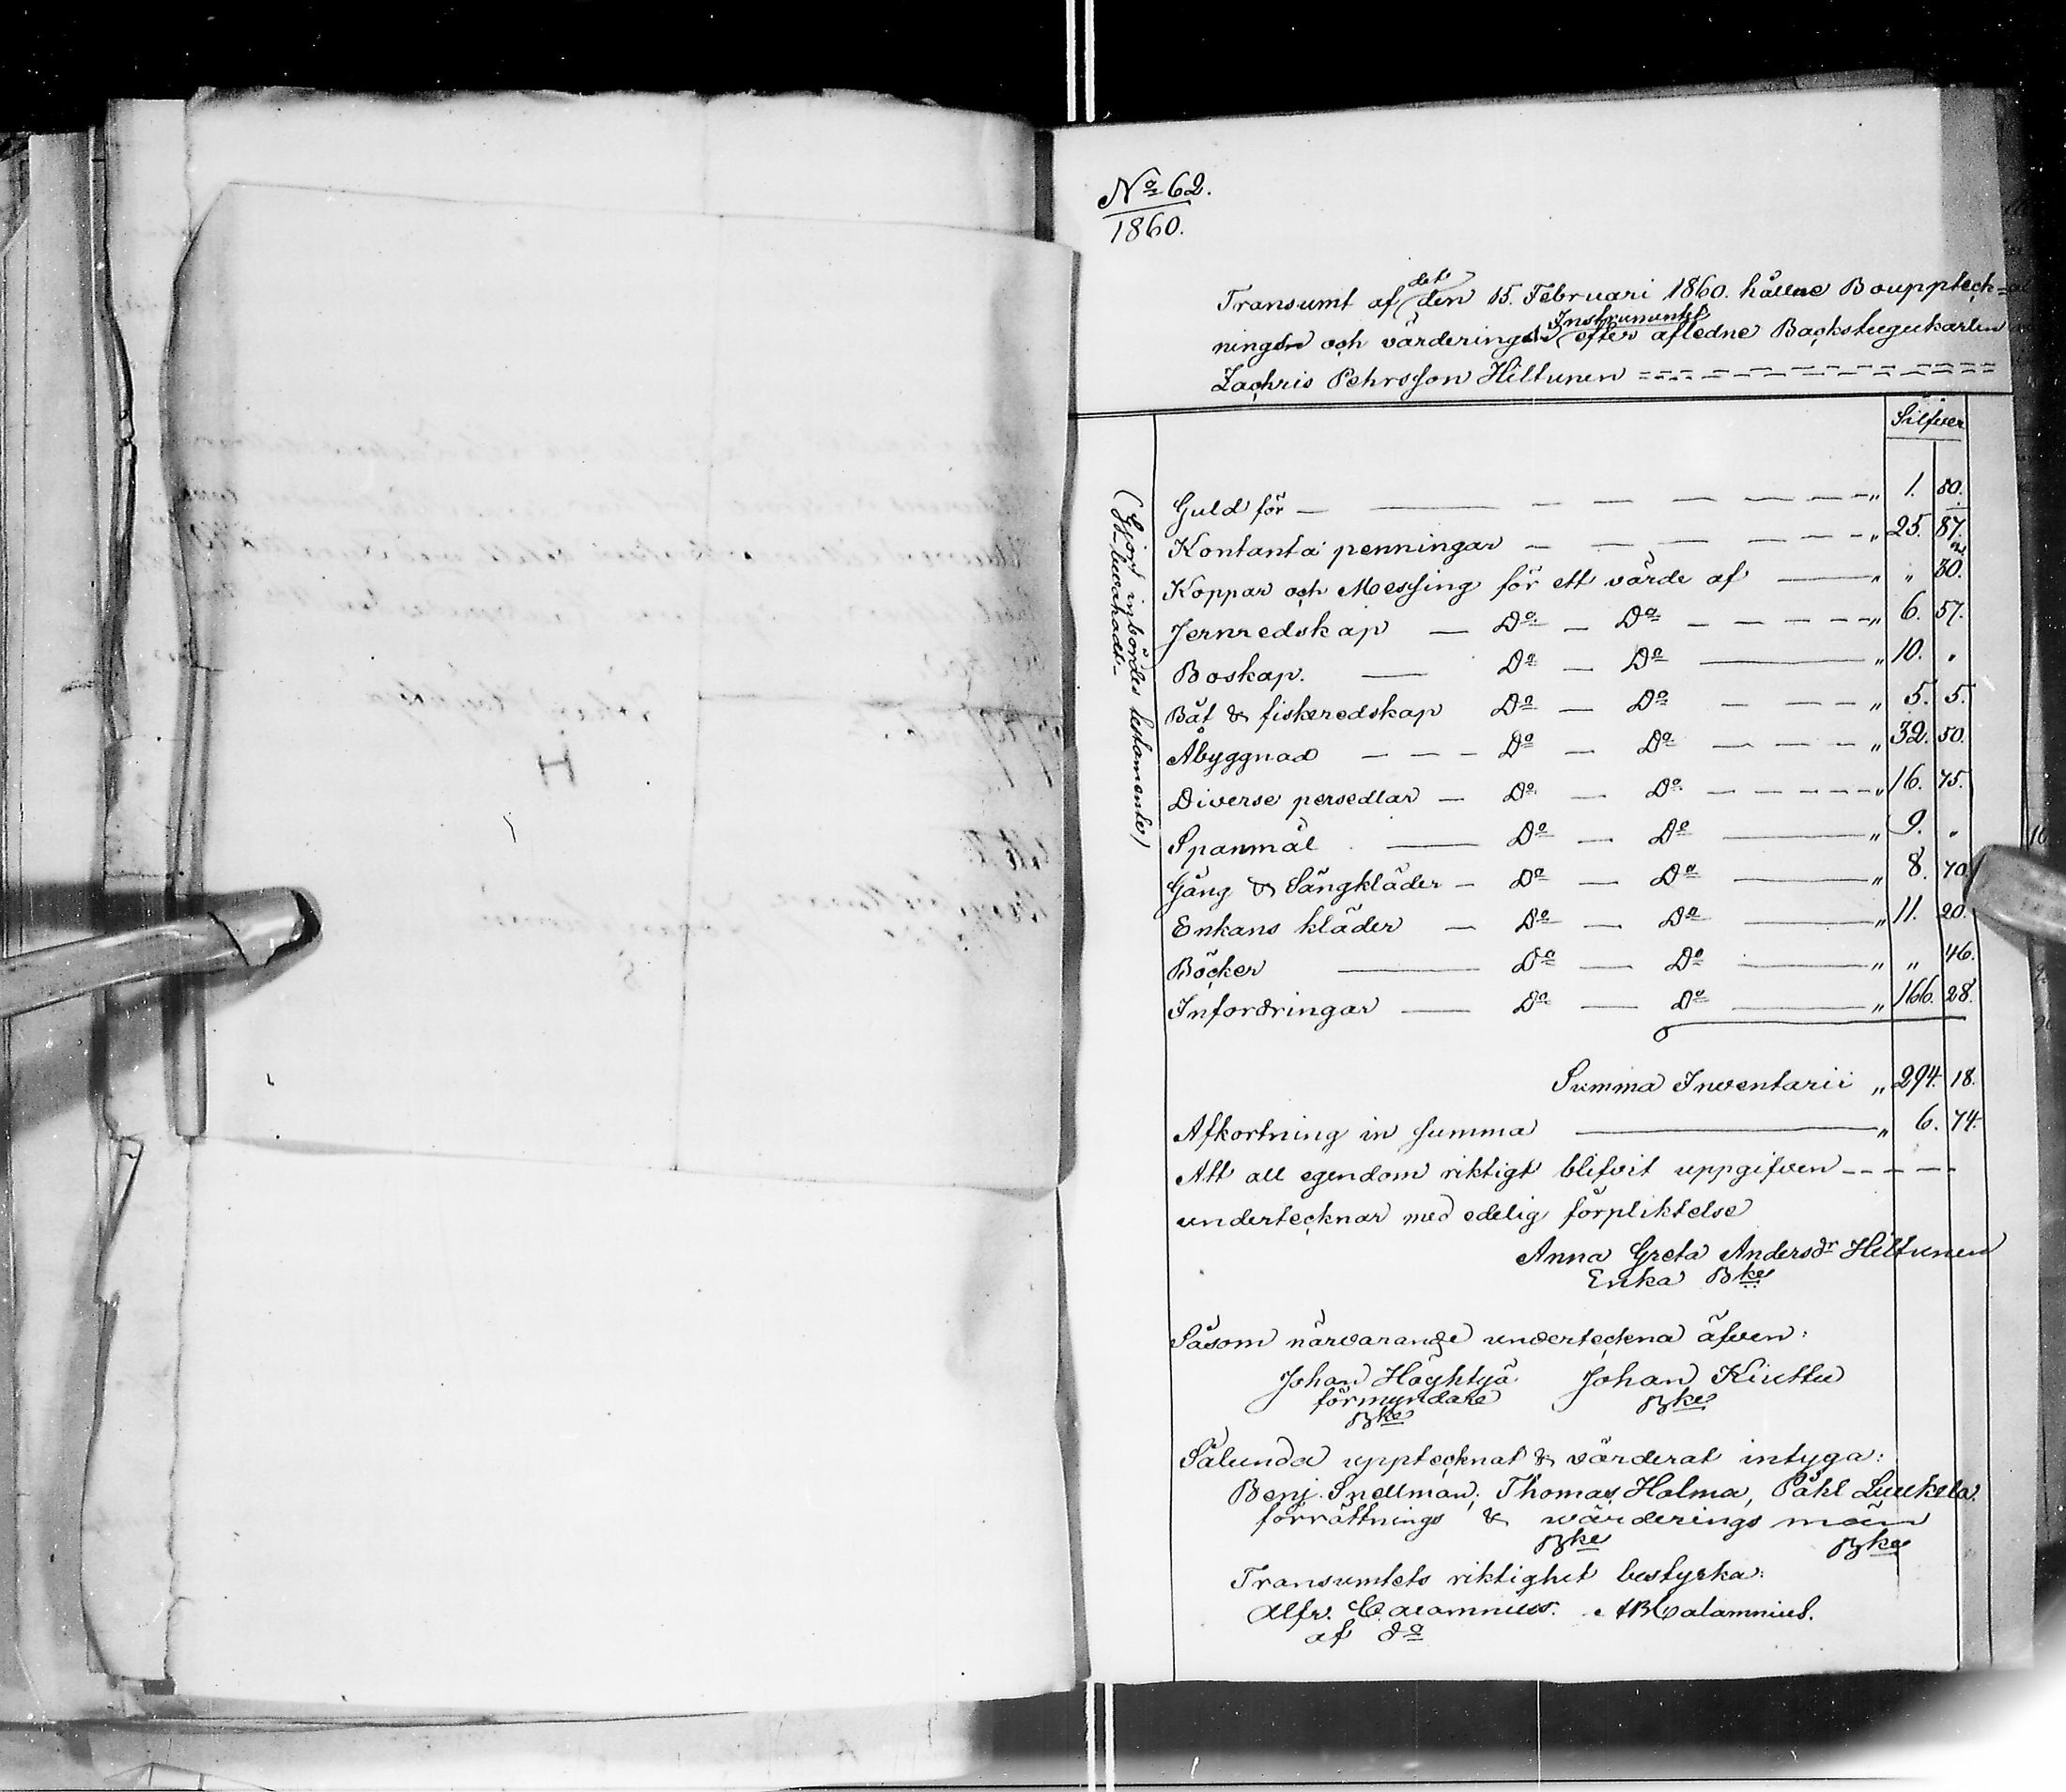 No 62.
1860.
det
Transumt af den 15. Februari 1860. hållne Bouppteck=
Instrumentet
ningen och värderings efter afledne Backstugukarlen
Zachris Pehrsson Hiltunen
Silfver
Guld för — — — — — " 1. 80.
Kontanta penningar — — — — " 25. 87.
Koppar och Messing för ett värde af — " " 30.
Jernredskap — Do — Do — — — " 6. 57.
Boskap. — Do — Do — " 10. "
Båt & fiskeredskap Do — Do — — " 5. 5.
Åbyggnad — — — Do — Do — — — " 32. 50.
Diverse persedlar — Do — Do — — — " 16. 75.
Spanmål — Do — Do — " 9. "
Gång & Sängkläder — Do — Do — " 8. 70.
Enkans kläder — Do — Do — " 11. 20.
Böcker — Do — Do — " " 46.
Infordringar — Do — Do — " 166. 28.
(Gjort inbördes testamente)
Summa Inventarii " 294. 18.
Afkortning in summa — " 6. 74.
Att all egendom riktigt blifvit uppgifven — — — —
undertecknar med edelig förpliktelse
Anna Greta Andersdr Hiltunen
Enka Bke
Såsom närvarande underteckna äfven:
Johan Höyhtyä Johan Kiuttu
förmyndare Bke
Bke
Sålunda upptecknat & värderat intyga:
Benj. Snellman, Thomas Halma, Påhl Luukela.
förrättnings & värderings män
Bke Bke
Transumtets riktighet bestyrka:
Alfr. Calamnius. AB Calamnius.
af do